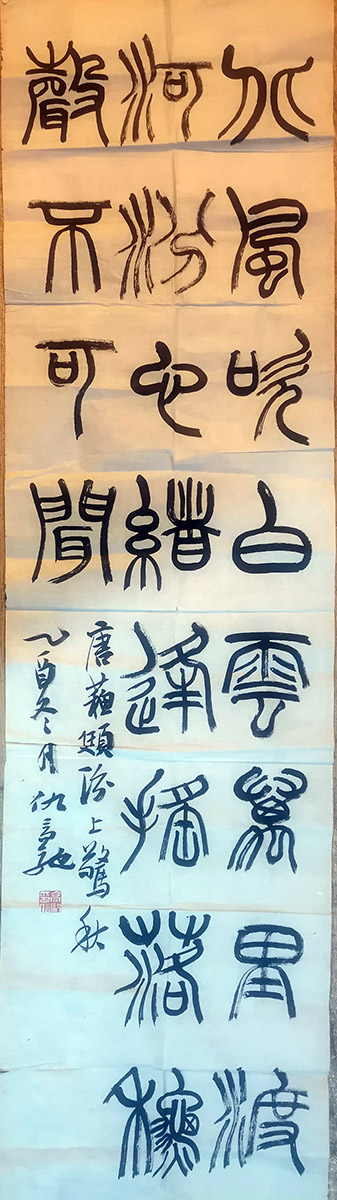 北風吹白雲萬里渡
河汾心緒逢搖落龝
聲不可聞
唐蘇頲汾上驚秋
乙酉冬月仇高馳